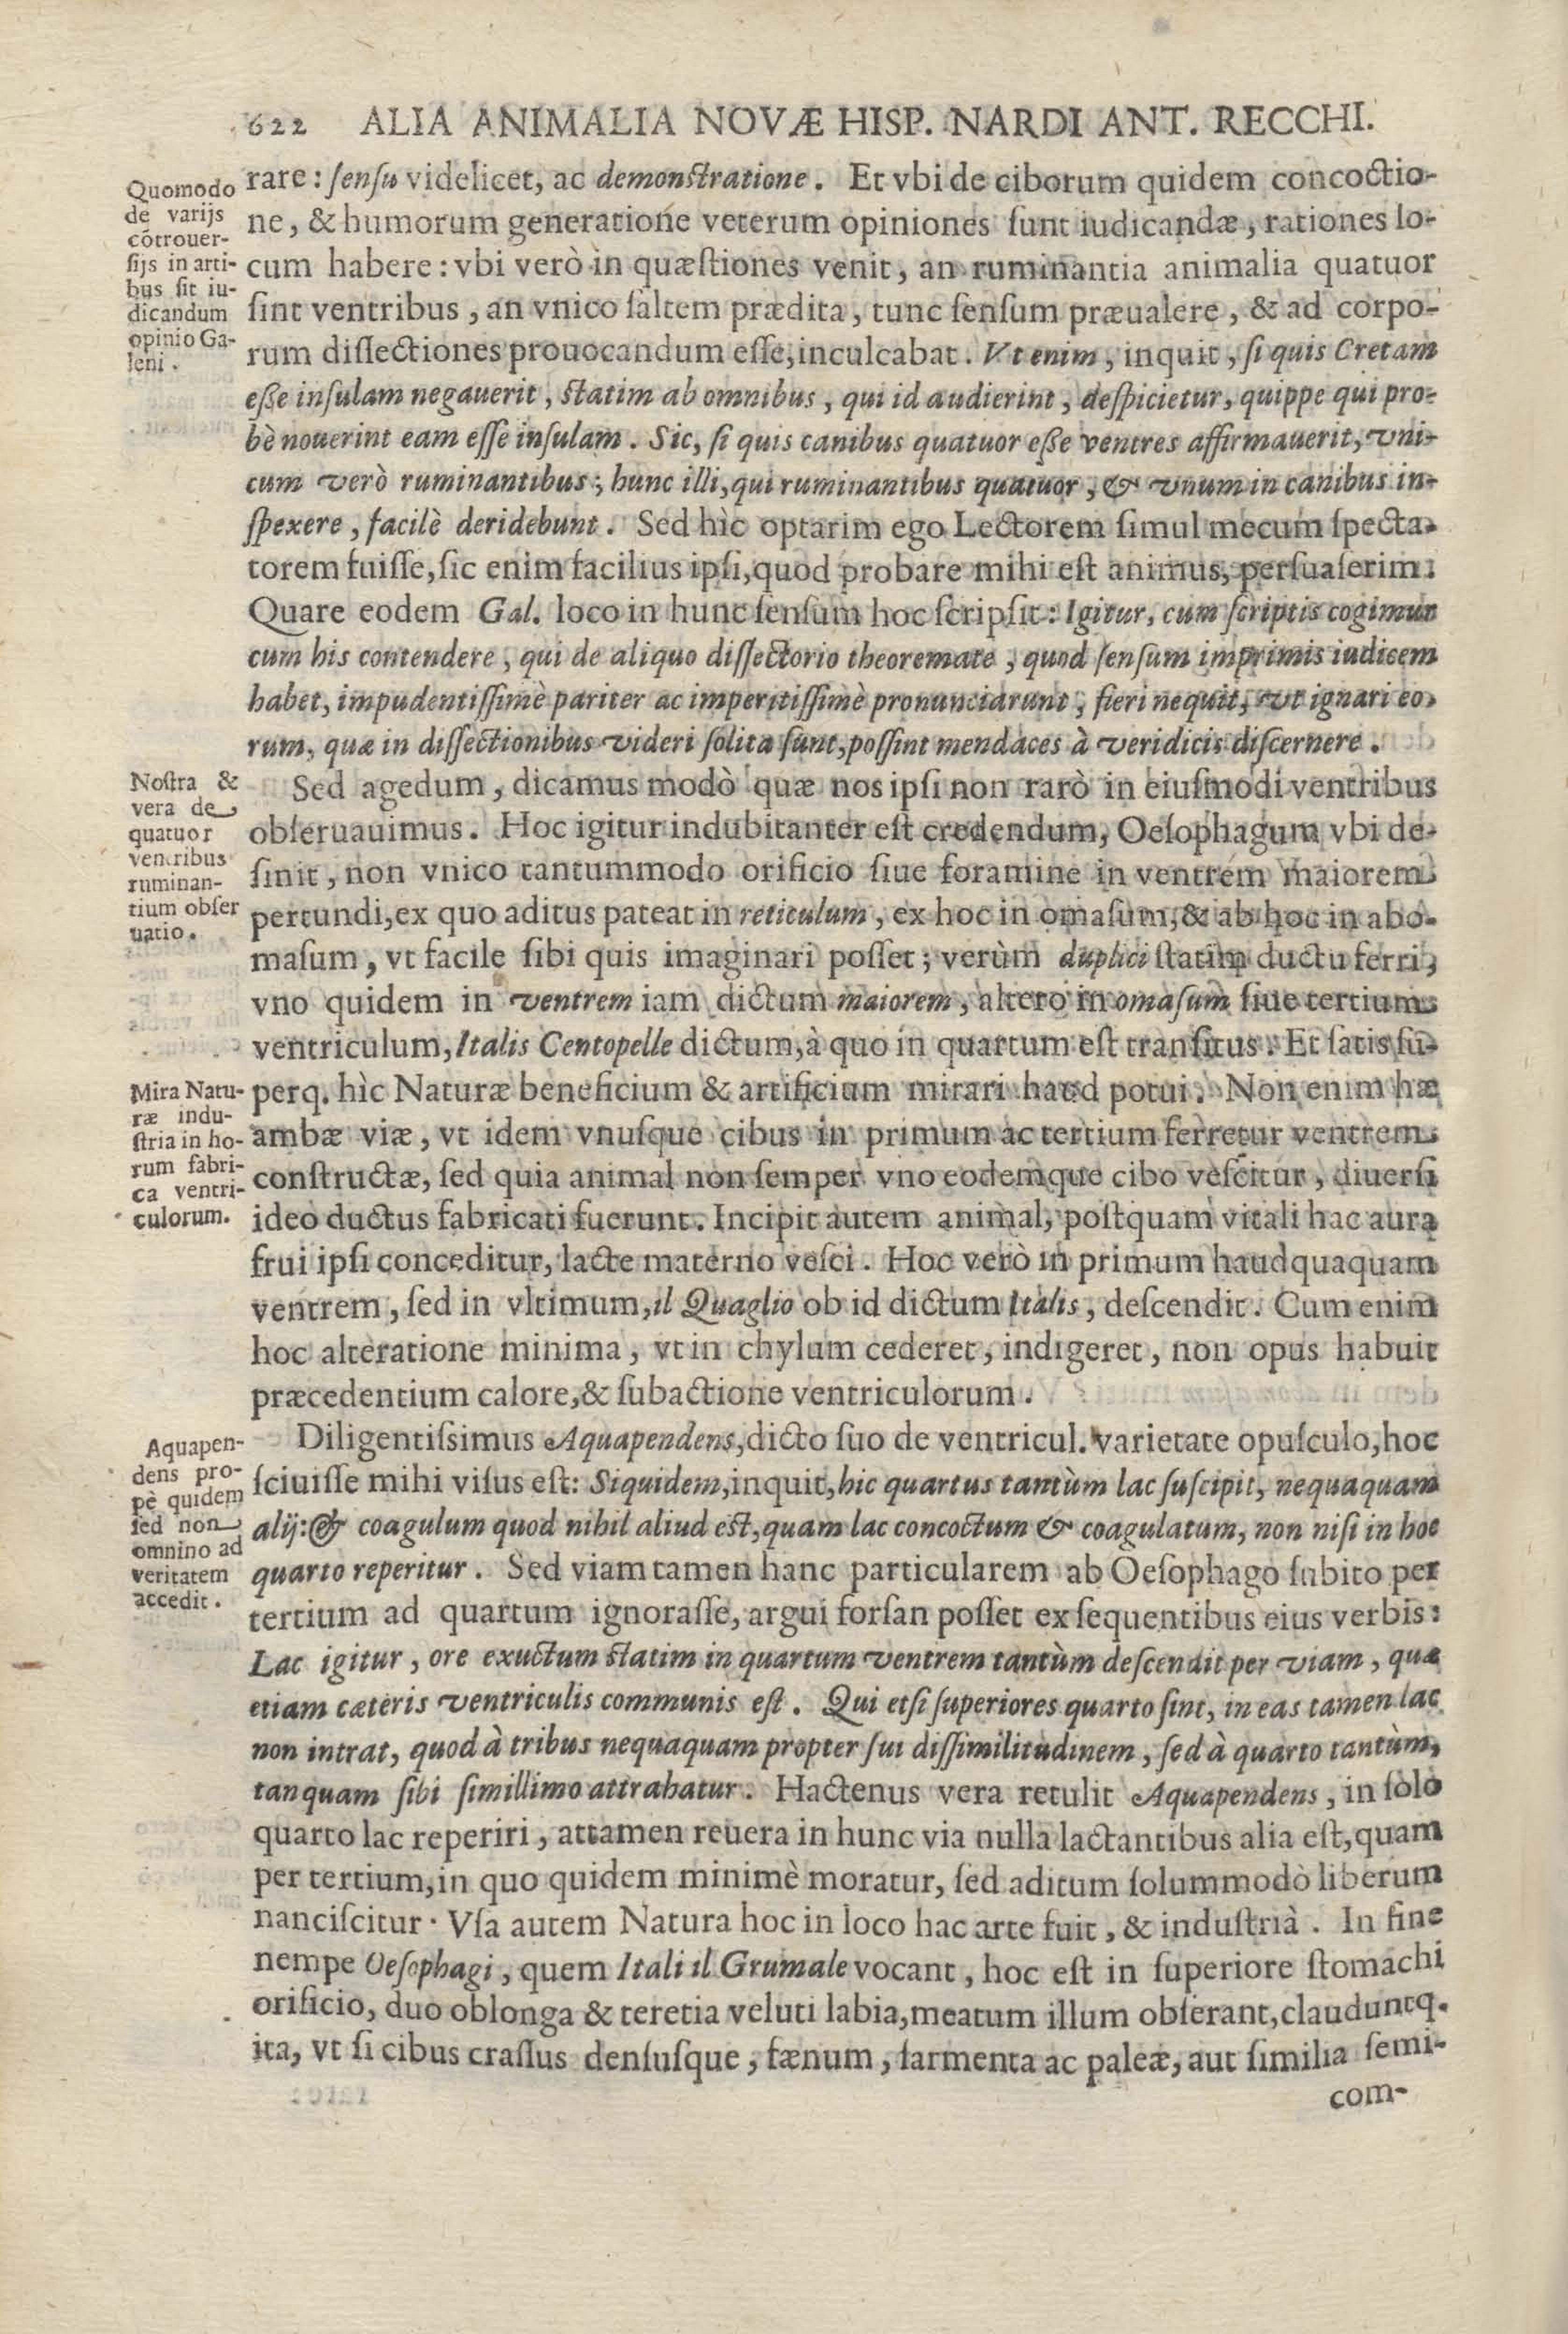 622 ALIA ANIMALIA NOVÆ HISP. NARDI ANT. RECCHI.
Quomodo
de varijs
cõtrouer-
ſijs in arti-
bus ſit iu-
dicandum
opinio Ga-
leni.
rare: ſenſu videlicet, ac demonſtratione. Et vbi de ciborum quidem concoctio-
ne, & humorum generatione veterum opiniones ſunt iudicandæ, rationes lo-
cum habere: vbi verò in quæſtiones venit, an ruminantia animalia quatuor
ſint ventribus, an vnico ſaltem prædita, tunc ſenſum præualere, & ad corpo-
rum diſſectiones prouocandum eſſe, inculcabat. Vt enim, inquit, ſi quis Cretam
eſſe inſulam negauerit, ſtatim ab omnibus, qui id audierint, deſpicietur, quippe qui pro-
bè nouerint eam eſſe inſulam. Sic, ſi quis canibus quatuor eſſe ventres affirmauerit, vni-
cum verò ruminantibus; hunc illi, qui ruminantibus quatuor, & vnum in canibus in-
ſpexere, facilè deridebunt. Sed hìc optarim ego Lectorem ſimul mecum ſpecta-
torem fuiſſe, ſic enim facilius ipſi, quod probare mihi eſt animus, perſuaſerim.
Quare eodem Gal. loco in hunc ſenſum hoc ſcripſit: Igitur, cum ſcriptis cogimur
cum his contendere, qui de aliquo diſſectorio theoremate, quod ſenſum imprimis iudicem
habet, impudentiſſimè pariter ac imperitiſſimè pronunciarunt, fieri nequit, vt ignari eo-
rum, quæ in diſſectionibus videri ſolita ſunt, poſſint mendaces à veridicis diſcernere.
Noſtra &
vera de
quatuor
ventribus
ruminan-
tium obſer
uatio.
Sed agedum, dicamus modò quæ nos ipſi non rarò in eiuſmodi ventribus
obſeruauimus. Hoc igitur indubitanter eſt credendum, Oeſophagum vbi de-
ſinit, non vnico tantummodo orificio ſiue foramine in ventrem maiorem
pertundi, ex quo aditus pateat in reticulum, ex hoc in omaſum, & ab hoc in abo-
maſum, vt facile ſibi quis imaginari poſſet; verùm duplici ſtatim ductu ferri,
vno quidem in ventrem iam dictum maiorem, altero in omaſum ſiue tertium
ventriculum, Italis Centopelle dictum, à quo in quartum eſt tranſitus. Et ſatis ſu-
Mira Natu-
ræ indu-
ſtria in ho-
rum fabri-
ca ventri-
culorum.
perq. hìc Naturæ beneficium & artificium mirari haud potui. Non enim hæ
ambæ viæ, vt idem vnuſque cibus in primum ac tertium ferretur ventrem
conſtructæ, ſed quia animal non ſemper vno eodemque cibo veſcitur, diuerſi
ideo ductus fabricati fuerunt. Incipit autem animal, poſtquam vitali hac aura
frui ipſi conceditur, lacte materno veſci. Hoc verò in primum haudquaquam
ventrem, ſed in vltimum, il Quaglio ob id dictum Italis, deſcendit. Cum enim
hoc alteratione minima, vt in chylum cederet, indigeret, non opus habuit
præcedentium calore, & ſubactione ventriculorum.
Aquapen-
dens pro-
pè quidem
ſed non
omnino ad
veritatem
accedit.
Diligentiſsimus Aquapendens, dicto ſuo de ventricul. varietate opuſculo, hoc
ſciuiſſe mihi viſus eſt: Siquidem, inquit, hic quartus tantùm lac ſuſcipit, nequaquam
alij: & coagulum quod nihil aliud eſt, quam lac concoctum & coagulatum, non niſi in hoc
quarto reperitur. Sed viam tamen hanc particularem ab Oeſophago ſubito per
tertium ad quartum ignoraſſe, argui forſan poſſet ex ſequentibus eius verbis:
Lac igitur, ore exuctum ſtatim in quartum ventrem tantùm deſcendit per viam, quæ
etiam cæteris ventriculis communis eſt. Qui etſi ſuperiores quarto ſint, in eas tamen lac
non intrat, quod à tribus nequaquam propter ſui diſſimilitudinem, ſed à quarto tantùm,
tanquam ſibi ſimillimo attrahatur. Hactenus vera retulit Aquapendens, in ſolo
quarto lac reperiri, attamen reuera in hunc via nulla lactantibus alia eſt, quam
per tertium, in quo quidem minimè moratur, ſed aditum ſolummodò liberum
nanciſcitur. Vſa autem Natura hoc in loco hac arte fuit, & induſtrià. In fine
nempe Oeſophagi, quem Itali il Grumale vocant, hoc eſt in ſuperiore ſtomachi
orificio, duo oblonga & teretia veluti labia, meatum illum obſerant, clauduntq.
ita, vt ſi cibus craſſus denſuſque, fænum, ſarmenta ac paleæ, aut ſimilia ſemi-
com-